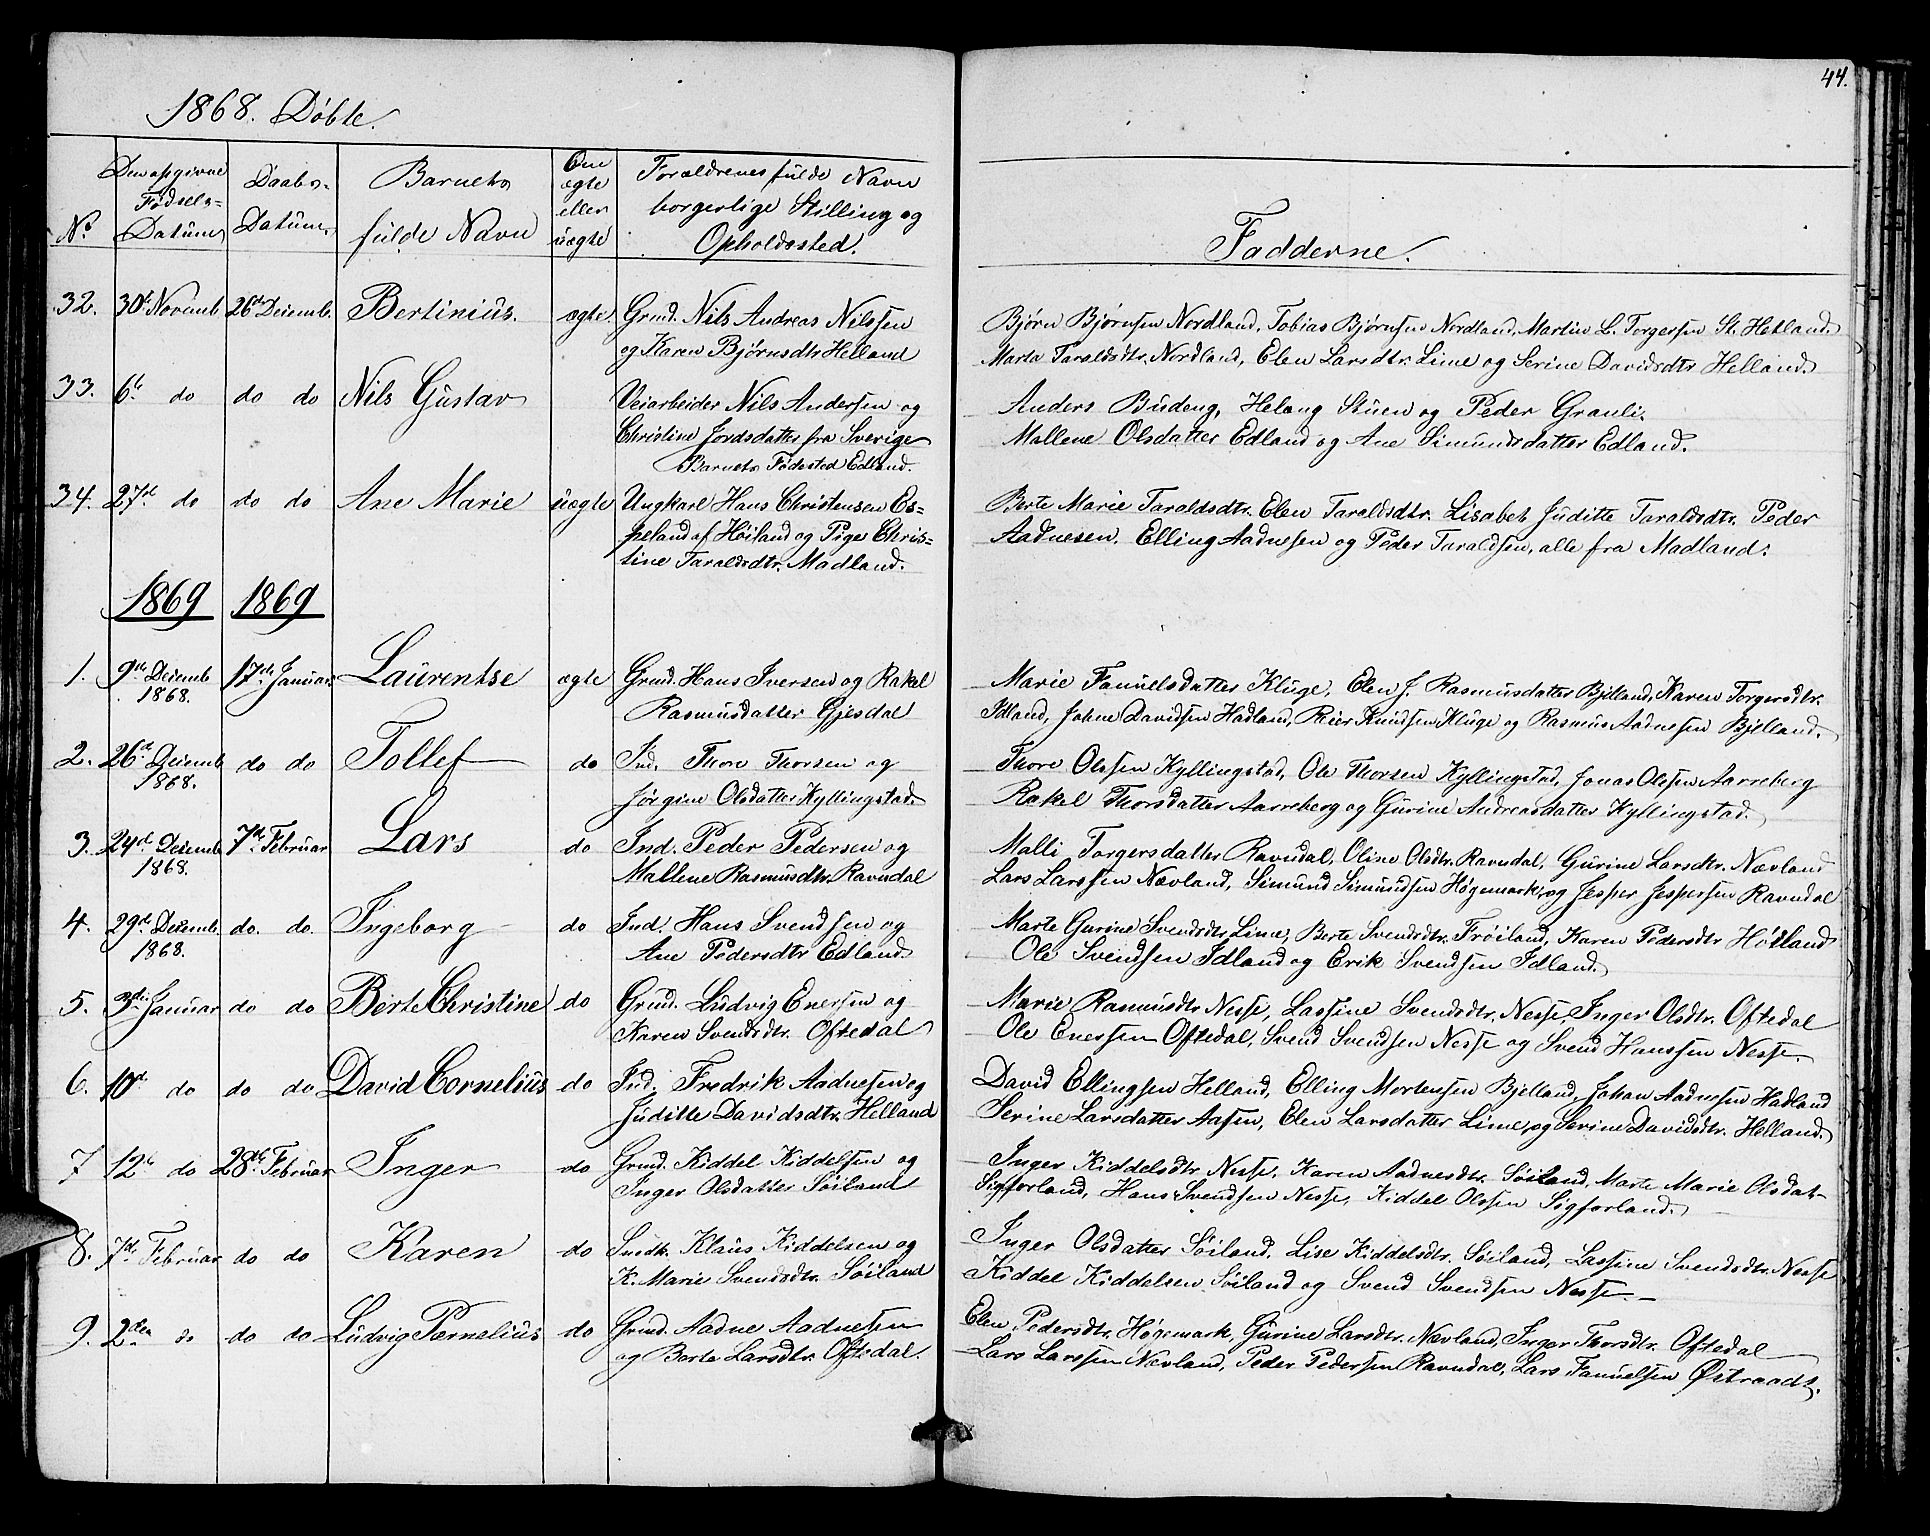 44.
1868. Døbte.
No
Den opgivne Fødsels-Datum
Daabs-Datum
Barnets fulde Navn
Om ægte eller uægte
Forældrenes fulde Navn borgerlige Stilling og Opholdssted.
Fadderne.
32. 30te Novemb 26de Decemb. Bertinius. ægte. Grmd. Nils Andreas Nilssen
og Karen Bjørnsdtr Helland
Bjørn Bjørnsen Nordland, Tobias Bjørnsen Nordland, Martin L. Torgersen St. Hetland.
Marta Taraldsdtr. Nordland, Elen Larsdtr. Lime og Serine Davidsdtr Helland.
33. 6te do do do Nils Gustav Veiarbeider Nils Andersen og
Christine Jordsdatter fra Sverige
Barnets Fødested Edland.
Anders Budeng, Helang Stuen og Peder Granli.
Mallene Olsdatter Edland og Ane Simundsdatter Edland.
34. 27de do do do Ane Marie uægte Ungkarl Hans Christensen Es-
peland af Høiland og Pige Chris-
tine Taraldsdtr. Madland.
Berte Marie Taraldsdtr. Elen Taraldsdtr. Lisabet Juditte Taraldsdtr. Peder
Aadnesen. Elling Aadnesen og Peder Taraldsen, alle fra Madland.
1869 1869
1. 9de Decemb 1868. 17de Januar. Laurentse ægte Grmd. Hans Iversen og Rakel
Rasmusdatter Gjesdal
Marie Fanuelsdatter Kluge, Elen J. Rasmusdatter Bjelland, Karen Torgersdtr.
Idland, Johne Davidsen Hadland, Peier Knudsen Kluge og Rasmus Aadnesen Bjelland.
2. 26de Decemb 1868. do do Tollef do Ind. Thore Thorsen og
Jørgine Olsdatter Kyllingstad.
Thore Olssen Kyllingstad, Ole Thorsen Kyllingstad, Jonas Olssen Aarreberg
Rakel Thorsdatter Aarreberg og Gurine Andreasdatter Kyllingstad.
3. 24de Decemb 1868. 7de Februar Lars do Ind. Peder Pedersen og
Mallene Rasmusdtr. Ravndal
Malli Torgersdatter Ravndal, Oline Olsdtr. Ravndal, Gurine Larsdtr. Nævland
Lars Larssen Nævland, Simund Simundsen Høgemark, og Jesper Jespersen Ravndal
4. 29de Decemb 1868. do. do. Ingeborg do Ind. Hans Svendsen og
Ane Pedersdtr Edland.
Marte Gurine Svendsdtr Lime, Berte Svendsdtr. Frøiland, Karen Pedersdtr Høiland
Ole Svendsen Idland og Erik Svendsen Idland.
5. 3die Januar do do Berte Christine do Grmd. Ludvig Enersen og
Karen Svendsdtr. Oftedal
Marie Rasmusdtr. Nesse, Lassine Svendsdtr. Nesse, Inger Olsdtr. Oftedal
Ole Enersen Oftedal, Svend Svendsen Nesse og Svend Hanssen Nesse.
6. 10de do do do David Cornelius do Ind. Fredrik Aadnesen og
Juditte Davidsdtr. Helland
David Ellingsen Helland, Elling Mortensen Bjelland, Johan Aadnesen Hadland
Serine Larsdatter Aasen, Elen Larsdatter Lime, og Serine Davidsdtr. Helland.
7 12te do 28de Februar Inger do Grmd. Kiddel Kiddelsen og
Inger Olsdatter Søiland
Inger Kiddelsdtr Nesse, Karen Aadnesdtr. Søiland, Marte Marie Olsdat-
Sigforland, Hans Svendsen Nesse, Kiddel Olssen Sigforland.
8. 7de Februar do do Karen do Smdk. Klaus Kiddelsen og
K. Marie Svendsdtr. Søiland
Inger Olsdatter Søiland, Lise Kiddelsdtr. Søiland, Lassine Svendsdtr. Nesse
Kiddel Kiddelsen Søiland og Svend Svendsen Nesse.
9. 2den do do do Ludvig Pernelius do Grmd. Aadne Aadnesen
og Berte Larsdtr. Oftedal.
Elen Pedersdtr. Høgemark, Gurine Larsdtr. Nævland, Inger Thorsdtr. Oftedal
Lars Larssen Nævland, Peder Pedersen Ravndal, Lars Fanuelsen Østraadt.